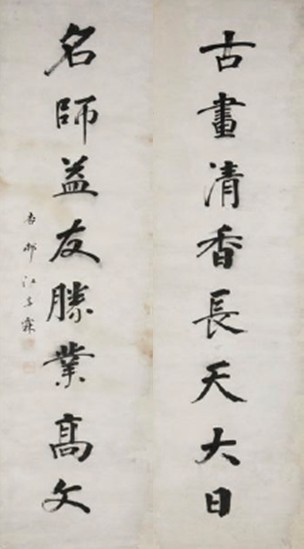 古畫清香長天大日
名師益友勝業髙文
杏邨江春霖